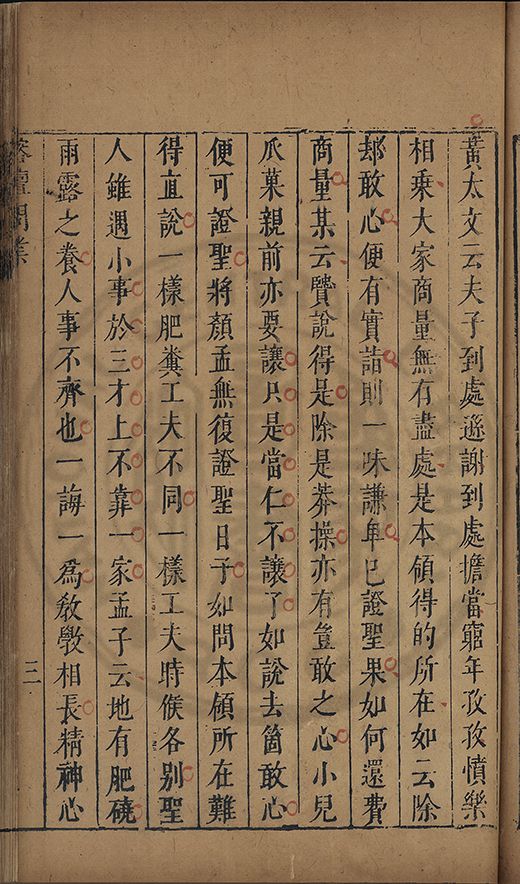 黃太文云夫子到處遜謝到處擔當窮年孜孜憤樂
相乘大家商量無有盡處是本領得的所在如云除
却敢心便有實詣則一味謙卑巳證聖果如何還費
商量某云贊說得是除是莽操亦有豈敢之心小兒
瓜菓親前亦要讓只是當仁不讓了如說去箇敢心
便可證聖將顏孟無復證聖日子如問本領所在難
得直說一樣肥糞工夫不同一樣工夫時候各別聖
人雖遇小事於三才上不靠一家孟子云地有肥磽
雨露之養人事不齊也一誨一為教斆相長精神心
榕壇問業
三